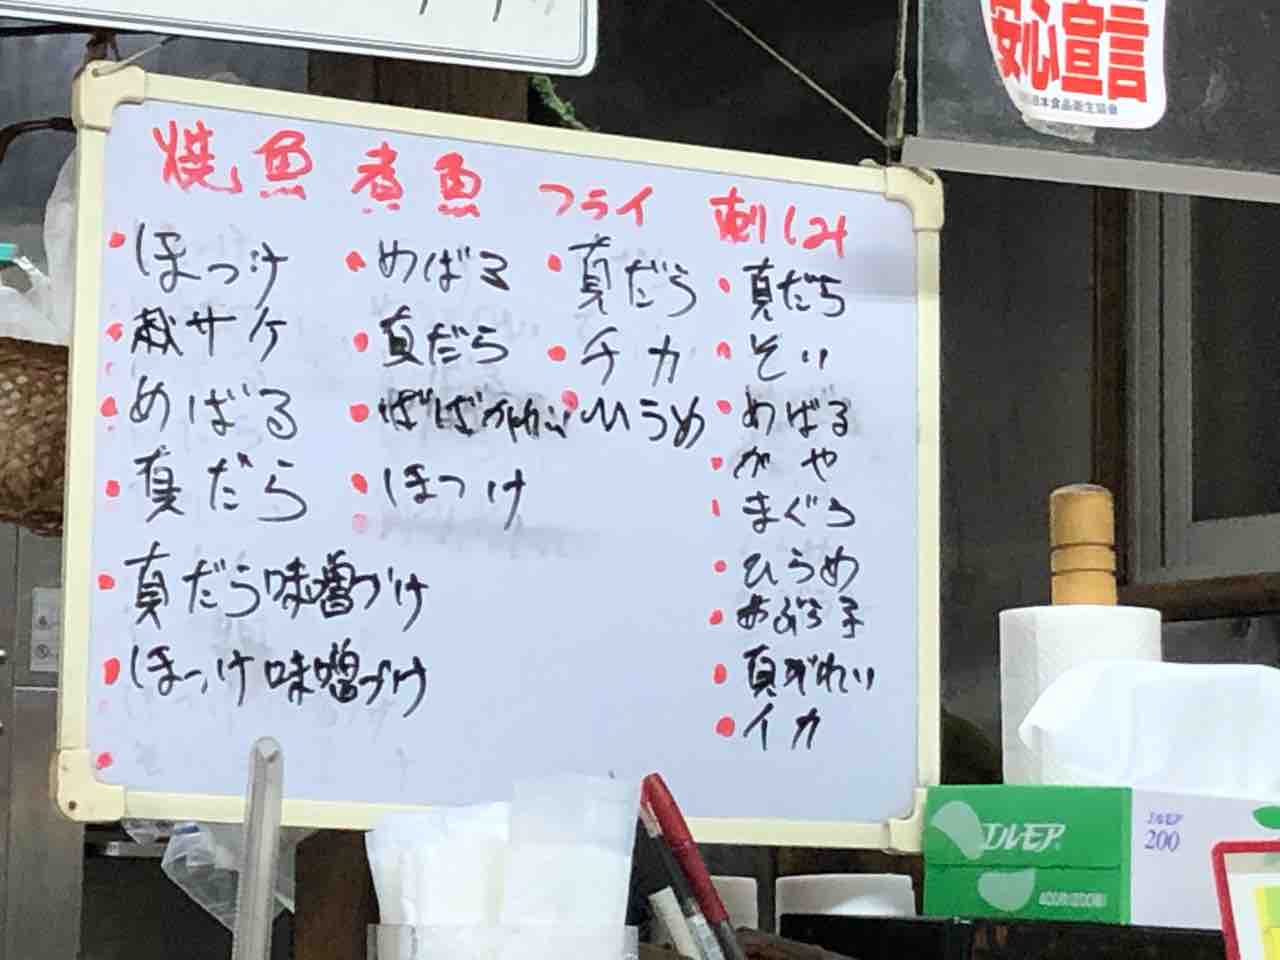 安心宣言
日本食品衛生協会
焼魚
・ほっけ
・秋サケ
・めばる
・真だら
・真だら味噌づけ
・ほっけ味噌づけ
煮魚
・めばる
・真だら
・ばばがれい
・ほっけ
フライ
・真だら
・チカ
・ひらめ
刺しみ
・真だち
・そい
・めばる
・がや
・まぐろ
・ひらめ
・あぶら子
・真がれい
・イカ
エルモア
エルモア
200